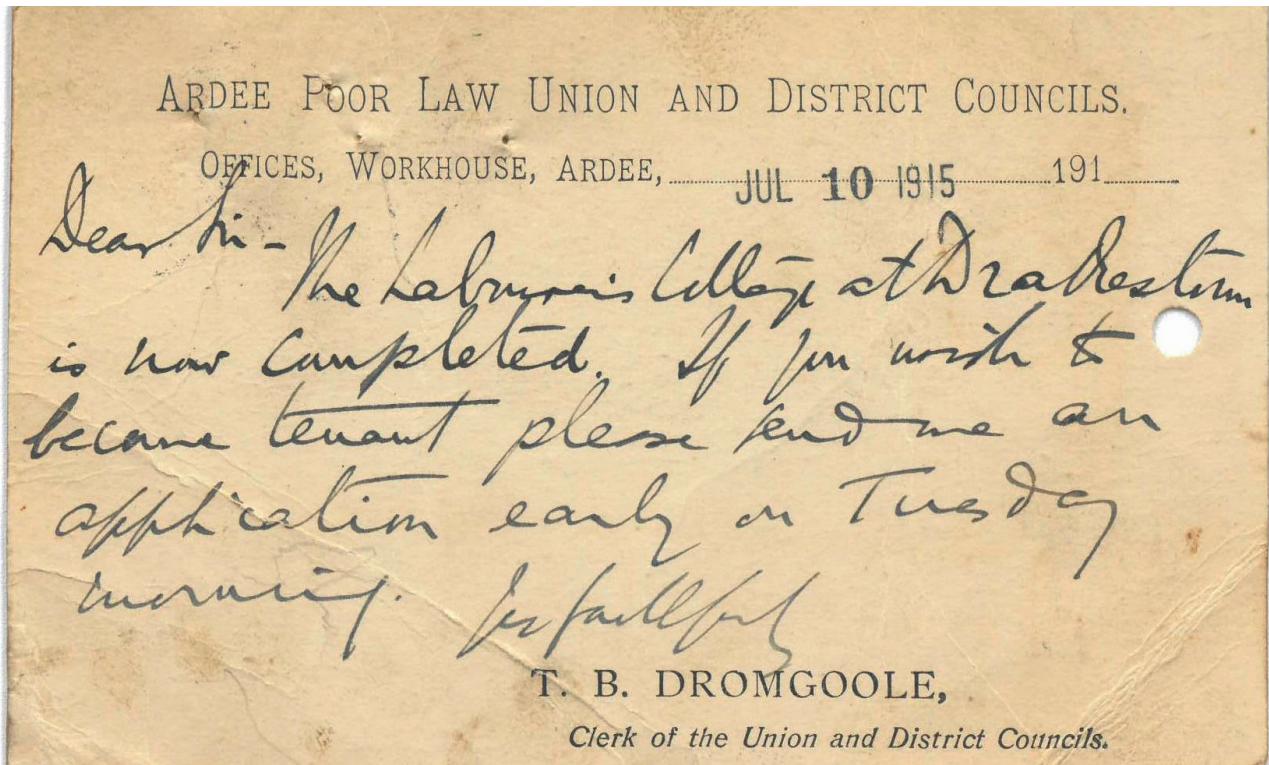 ARDEE POOR LAW UNION AND DISTRICT COUNCILS.
OFFICES, WORKHOUSE, ARDEE, JUL 10 1915 191
Dear Sir -
The Labourer's Cottage at Drakestown
is now completed. If you wish to
become tenant please send me an
application early on Tuesday
morning. Yrs faithfully
T. B. DROMGOOLE,
Clerk of the Union and District Councils.